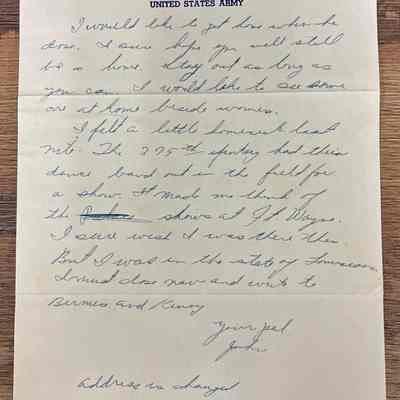 UNITED STATES ARMY
I would like to get home when he
does. I sure hope you will still
be a home. Stay out as long as
you can. I would like to see some
one at home beside women.
I felt a little homesick last
nite. The 375th infantry had their
dance band out in the field for
a show. It made me think of
the shows at Ft. Wayne.
I sure wish I was there then.
But I was in the state of Louisiana
I must close now and write to
and
Your pal
John
Address is changed